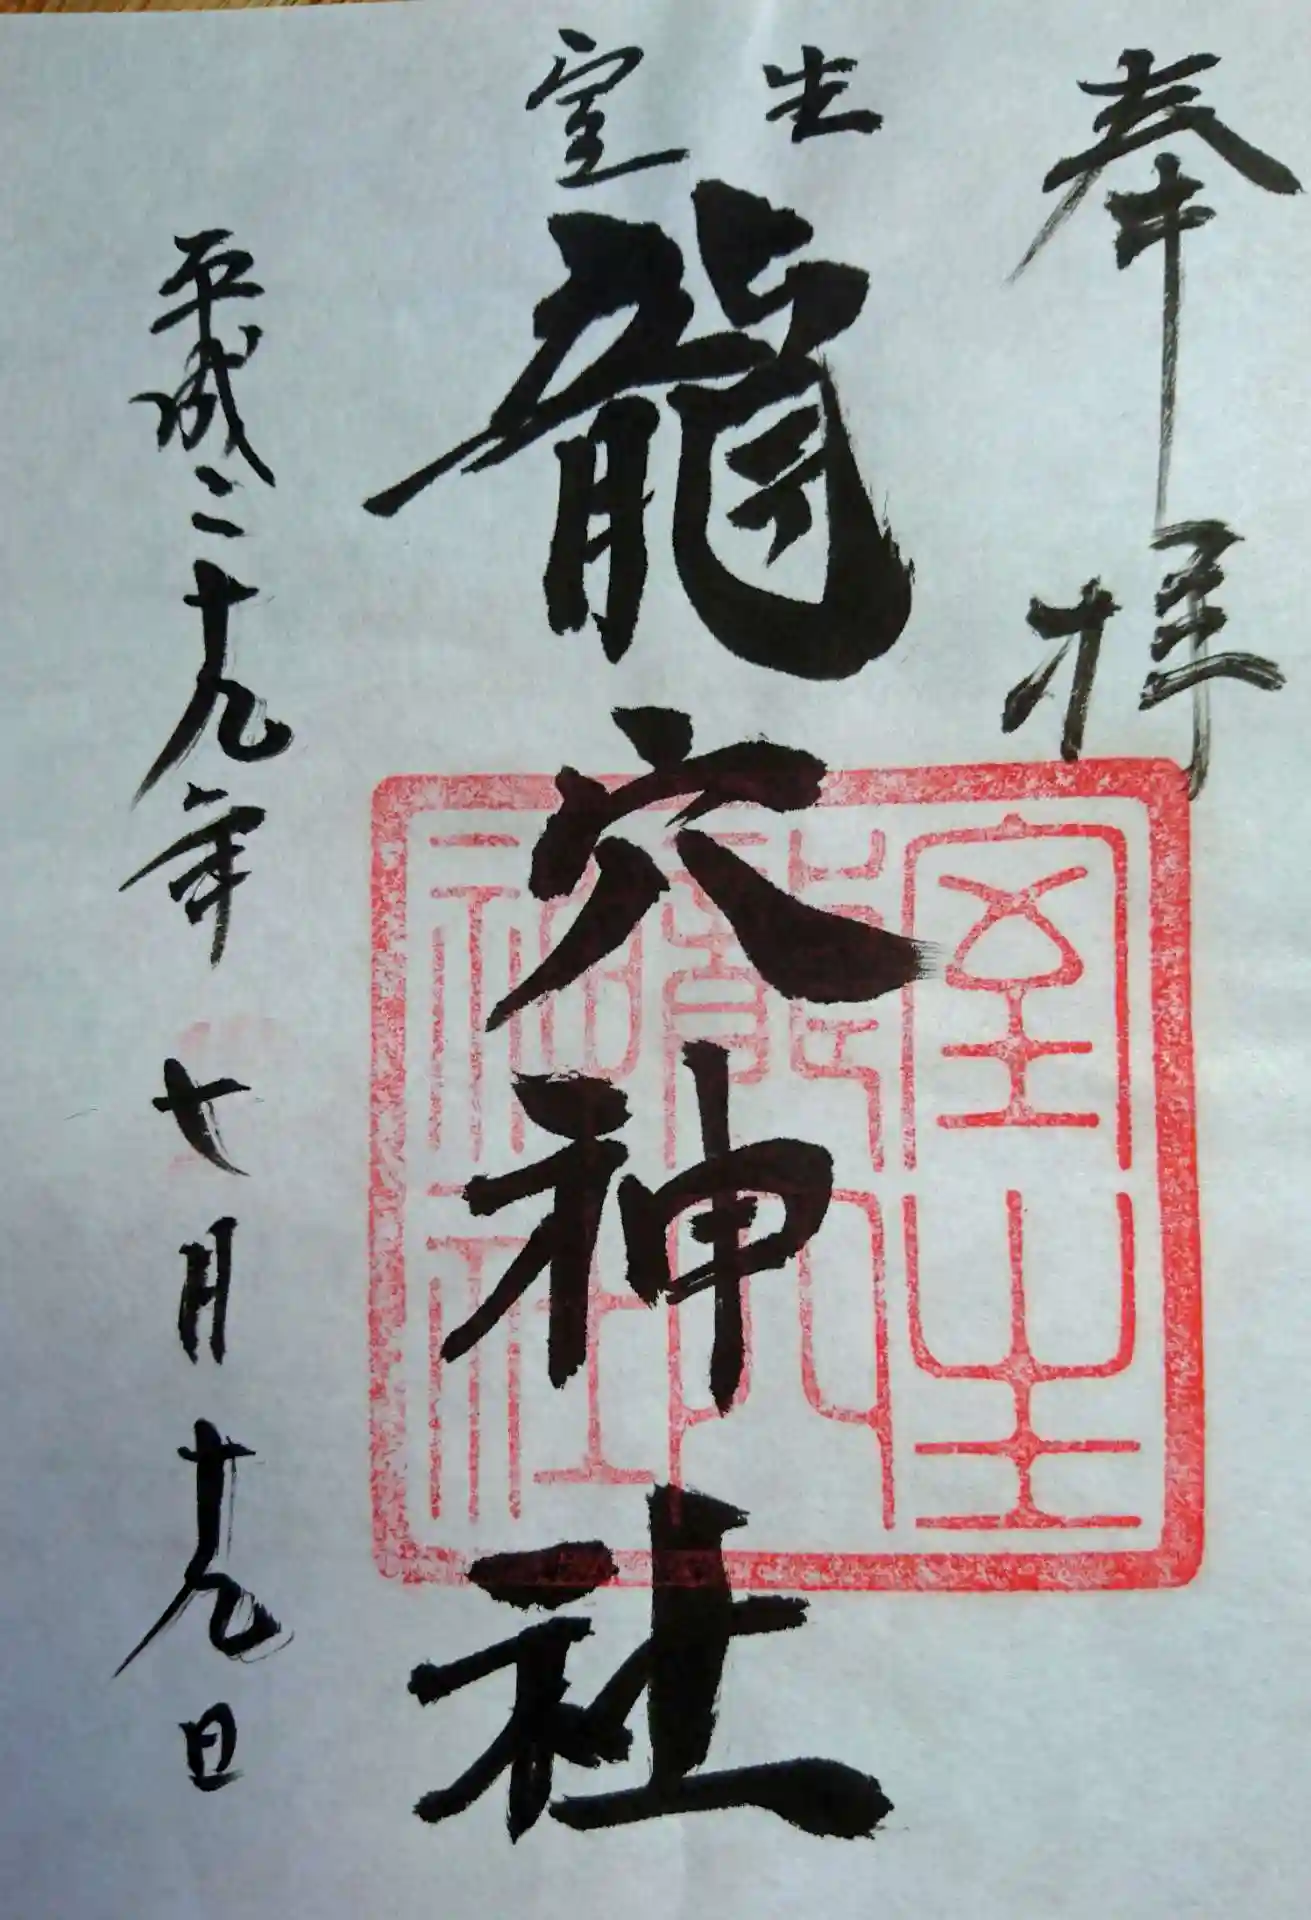 奉拝
室生
龍穴神社
平成二十九年 七月十九日
室生
龍穴
神社